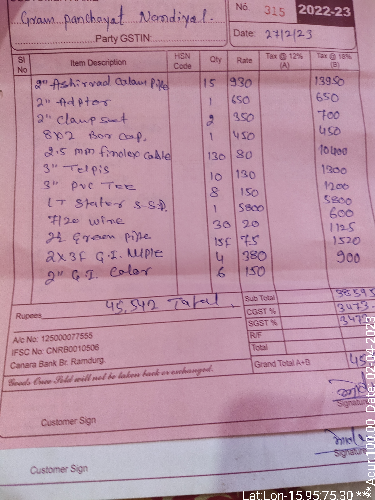 Gram panchayat Nandiyal.
Party GSTIN:
No. 315 2022-23
Date: 27/2/23
Sl No Item Description HSN Code Qty Rate Tax @ 12% (A) Tax @ 18% (B)
2" Ashirvad Colam Pipe 15 930 13950
2" Adptor 1 650 650
2" Clamp set 2 350 700
8x2 Bor cap. 1 450 450
2.5 mm finolex cable 130 80 10400
3" Telpis 10 130 1300
3" PVC TEE 8 150 1200
LT Stator S.S.D. 1 5800 5800
7/20 wire 30 20 600
2½ Green pipe 15f 75 1125
2x3f G.I. NIPLE 4 380 1520
2" G.I. Coler 6 150 900
Rupees 45,542 Total
Sub Total 38595
CGST % 3473
SGST % 3473
R/F
Total
Grand Total A+B 45
A/c No: 125000077555
IFSC No: CNRB0010506
Canara Bank Br. Ramdurg.
Goods Once Sold will not be taken back or exchanged.
Customer Sign
Signature
Customer Sign
Signature
LatLon-15.957530
***Acur100.00 Date,02-04-2023